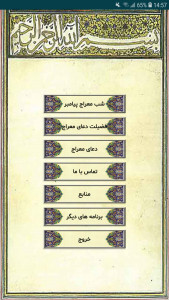 65% 14:57
بسم الله الرحمن الرحیم
شب معراج پیامبر
فضیلت دعای معراج
دعای معراج
تماس با ما
منابع
برنامه های دیگر
خروج